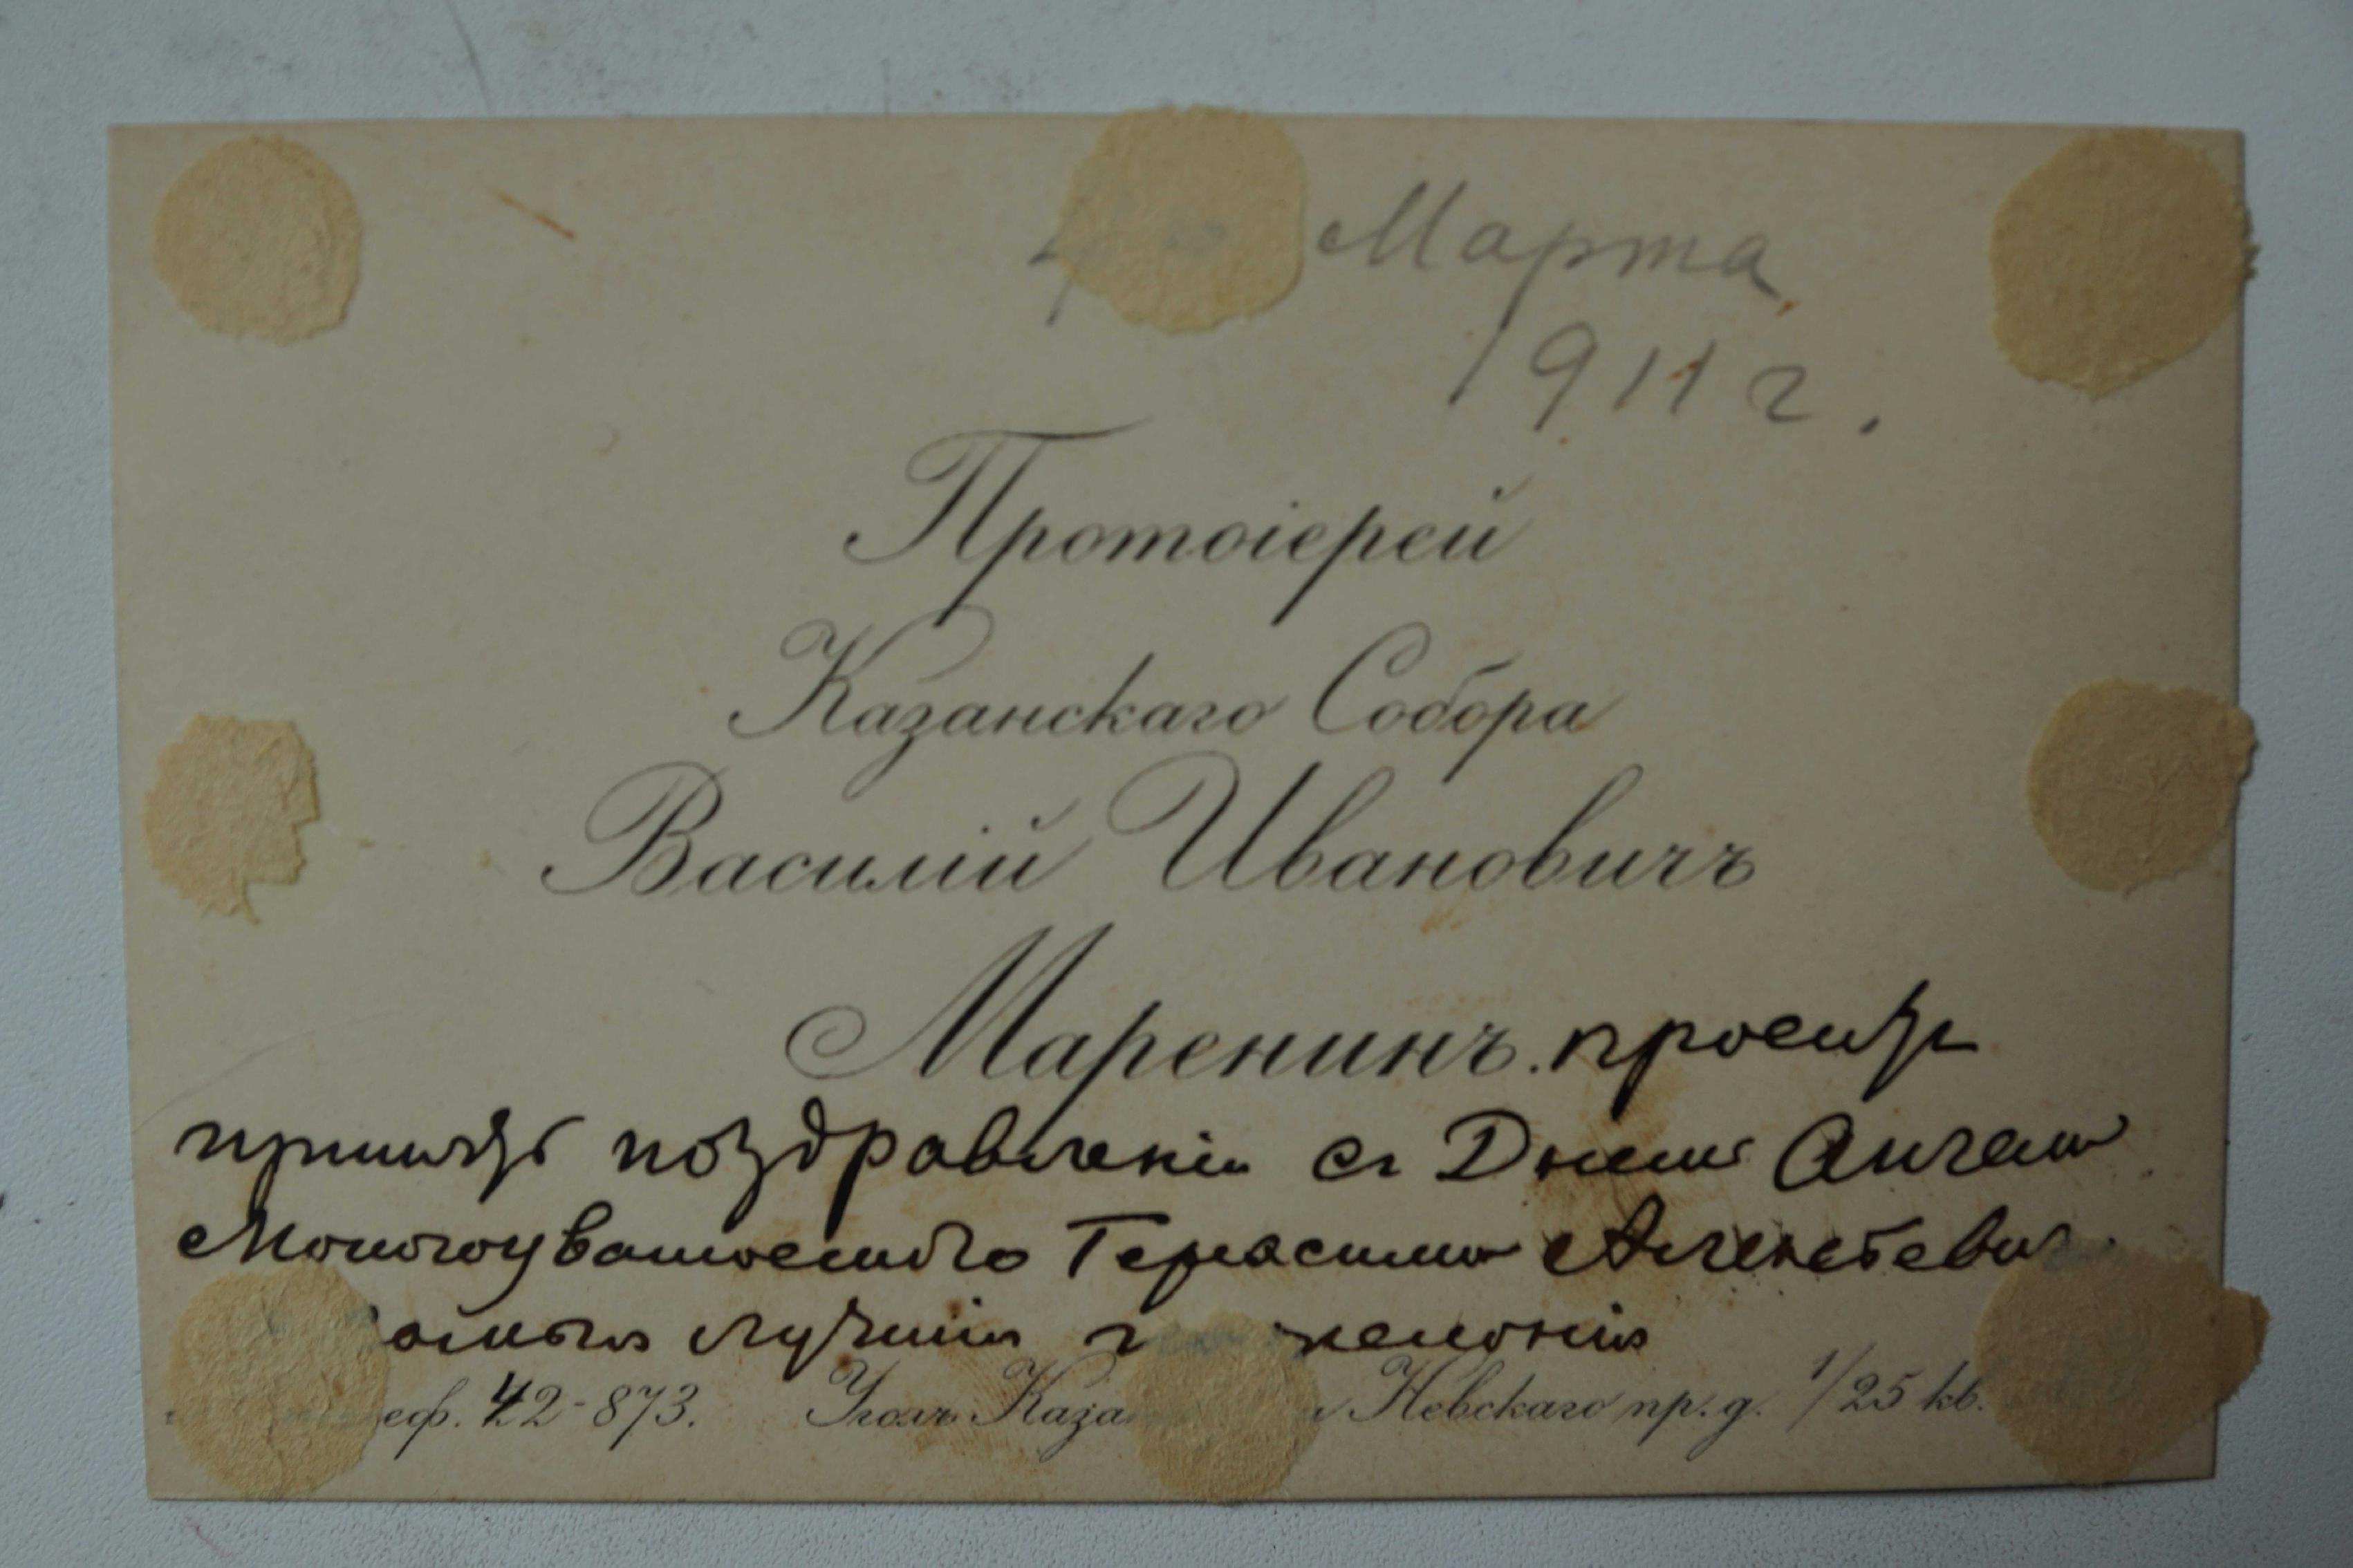 4 Марта
1911 г.
Протоіерей
Казанскаго Собора
Василій Ивановичъ
Маренинъ. проситъ
принять поздравленія съ Днемъ Ангела
Многоуважаемаго Герасима Алексѣевич
лучшія желанія
еф. 42-873. Уголъ Каза и Невскаго пр. д. 1/25 кв.